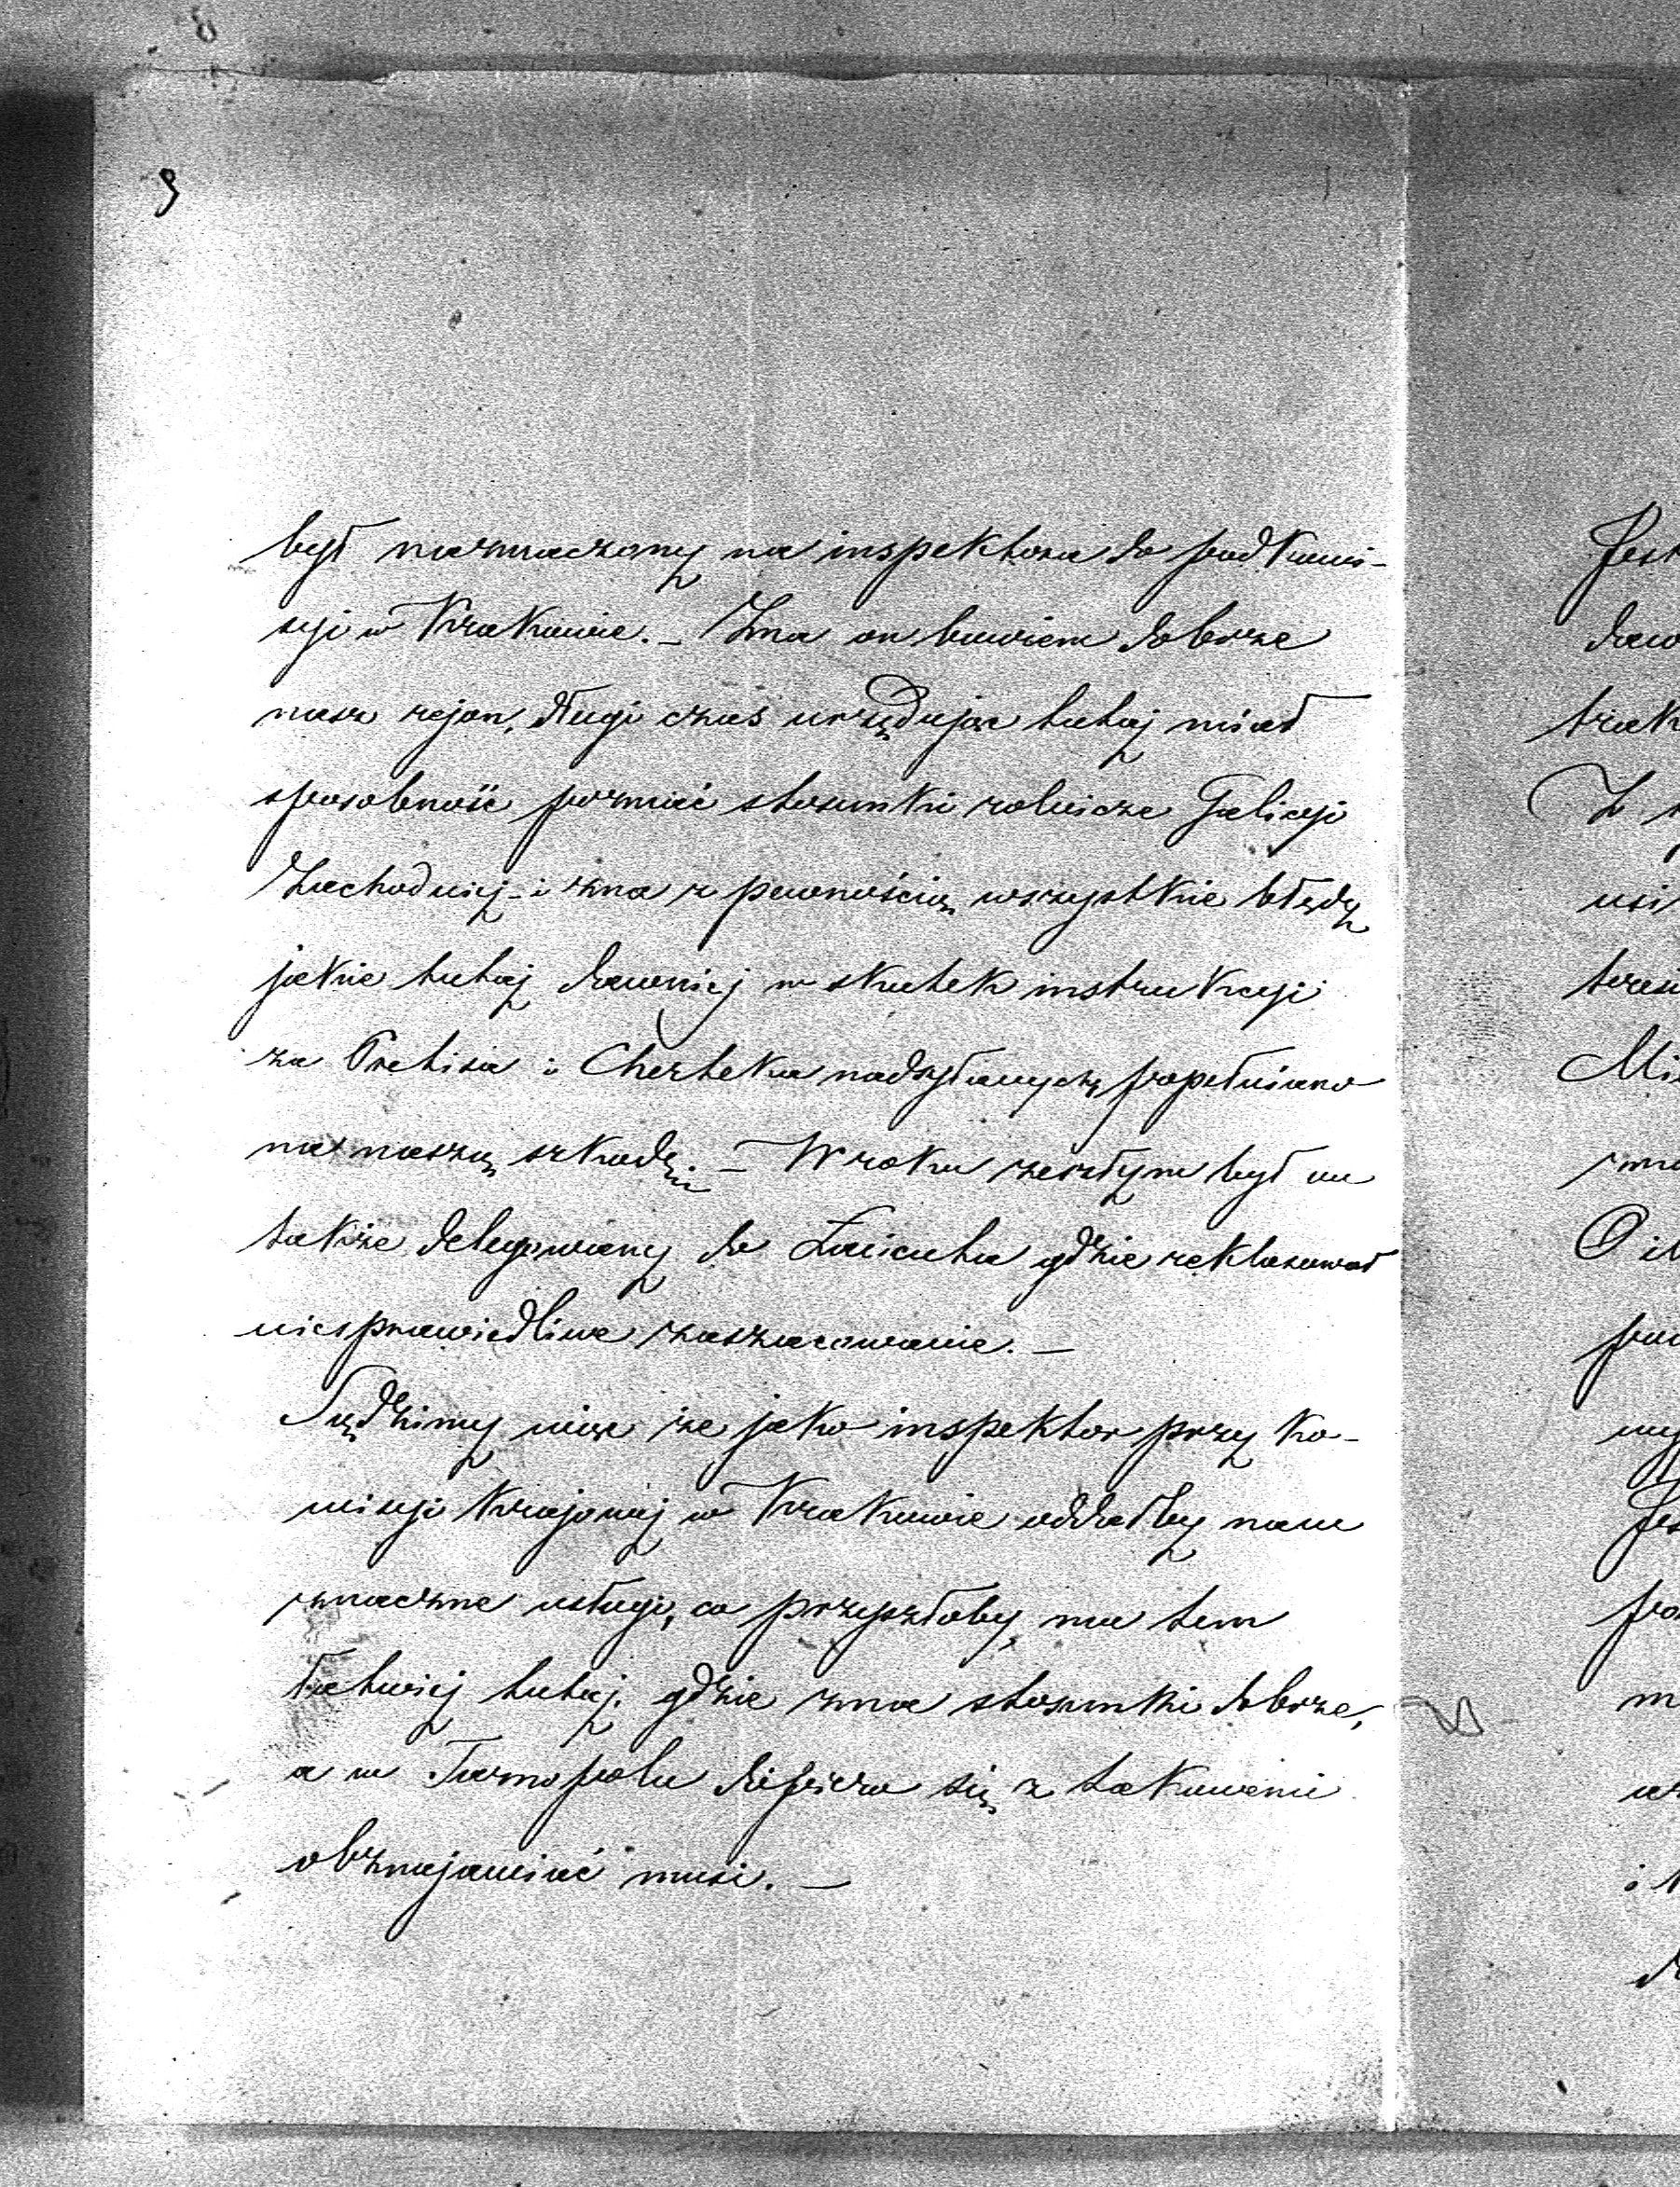 9
był naznaczony na inspektora do podkomis-
syi w Krakowie. – Zna on bowiem dobrze
nasz rejon, długi czas urzędując tutaj miał
sposobność poznać stosunki rolnicze Galicyi
Zachodniej – i zna z pewnością wszystkie błędy
jakie tutaj dawniej w skutek instrukcyi
za Pretisa i Cherteka nadsyłanych, popełniano
na naszą szkodę. – W roku zeszłym był on
także delegowany do Łańcuta gdzie reklasował
niesprawiedliwe zaszacowanie. –
Sądzimy więc że jako inspektor przy ko-
misyi krajowej w Krakowie oddałby nam
znaczne usługi, co przyszłoby mu tem
łatwiej tutaj, gdzie zna stosunki dobrze,
a w Tarnopolu dopiero się z takowemi
obznajamiać musi. –